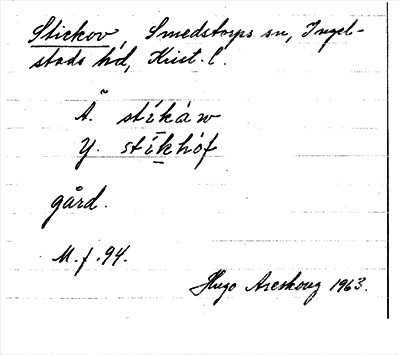 Stickov, Smedstorps sn, Ingel-
stads hd, Krist. l.
Ä. stíkáw
Y. stíkhóf
gård.
M.f. 94.
Hugo Areskoug 1963.